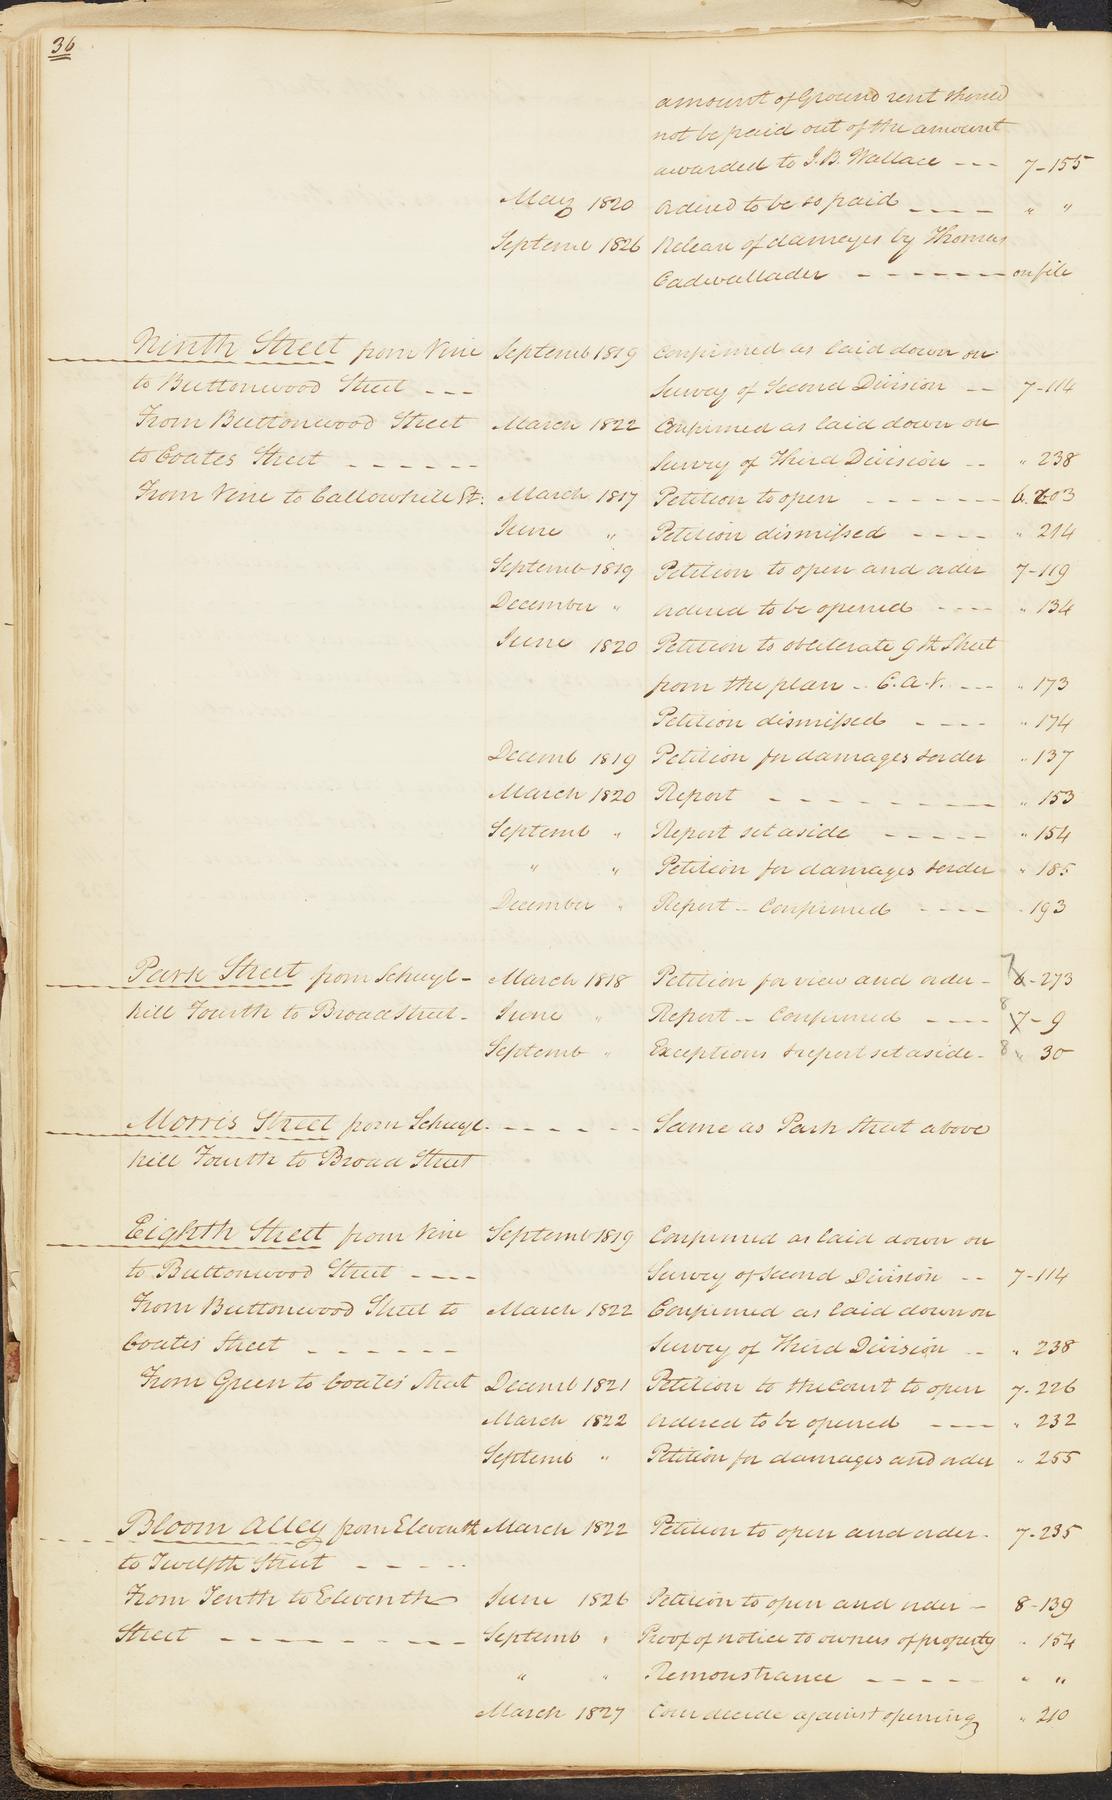 36
amount of Ground rent should
not be paid out of the amount
awarded to J. B. Wallace --- 7-155
May 1820 Ordered to be so paid ---- " "
Septem 1826 Release of damages by Thomas
Cadwallader ------- on file
Ninth Street from Vine Septemb 1819 Confirmed as laid down on
to Buttonwood Street --- Survey of Second Division -- 7-114
From Buttonwood Street March 1822 Confirmed as laid down on
to Coates Street ------ Survey of Third Division -- " 238
From Vine to Callowhill St: March 1817 Petition to open ------- 6.203
June " Petition dismissed ---- " 214
Septemb 1819 Petition to open and order 7-119
December " Ordered to be opened ---- " 134
June 1820 Petition to obliterate 9th Street
from the plan -- C.A.V. --- " 173
Petition dismissed ---- " 174
Decemb 1819 Petition for damages & order " 137
March 1820 Report --------- " 153
Septemb " Report set aside ----- " 154
" " Petition for damages & order " 185
December " Report -- Confirmed ---- " 193
Park Street from Schuyl- March 1818 Petition for view and order - 7 6-273
hill Fourth to Broad Street - June " Report -- Confirmed ---- 8 7-9
Septemb " Exceptions & report set aside - 8 " 30
Morris Street from Schuyl- ----- Same as Park Street above
hill Fourth to Broad Street
Eighth Street from Vine Septemb 1819 Confirmed as laid down on
to Buttonwood Street ---- Survey of Second Division -- 7-114
From Buttonwood Street to March 1822 Confirmed as laid down on
Coates Street ------ Survey of Third Division -- " 238
From Green to Coates Street Decemb 1821 Petition to the Court to open 7-226
March 1822 Ordered to be opened ---- " 232
Septemb " Petition for damages and order " 255
Bloom Alley from Eleventh March 1822 Petition to open and order - 7-235
to Twelfth Street -----
From Tenth to Eleventh June 1826 Petition to open and order - 8-139
Street --------- Septemb " Proof of notice to owners of property " 154
" " Remonstrance ----- " "
March 1827 Court decide against opening " 210